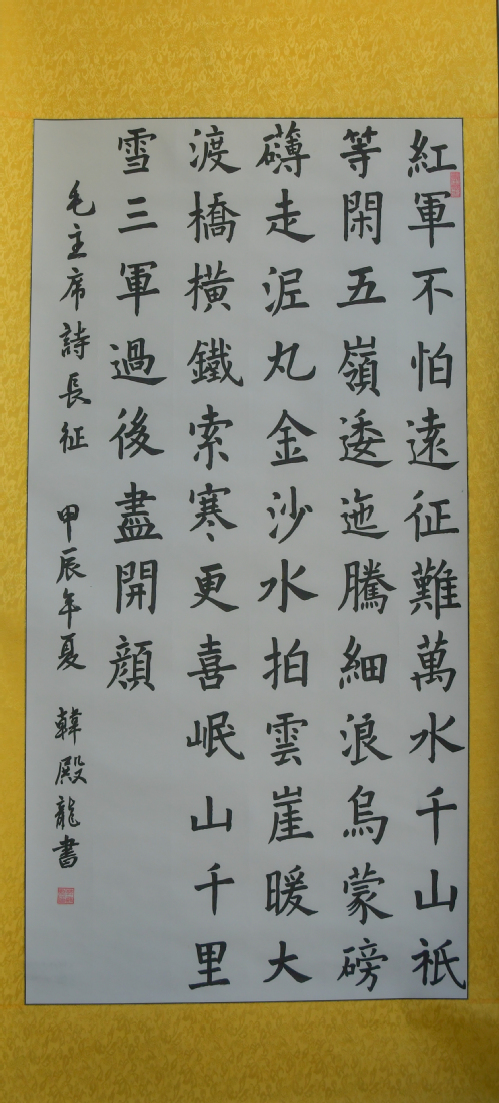 紅軍不怕遠征難萬水千山祇
等閑五嶺逶迤騰細浪烏蒙磅
礴走泥丸金沙水拍雲崖暖大
渡橋橫鐵索寒更喜岷山千里
雪三軍過後盡開顏
毛主席詩長征 甲辰年夏 韓殿龍書